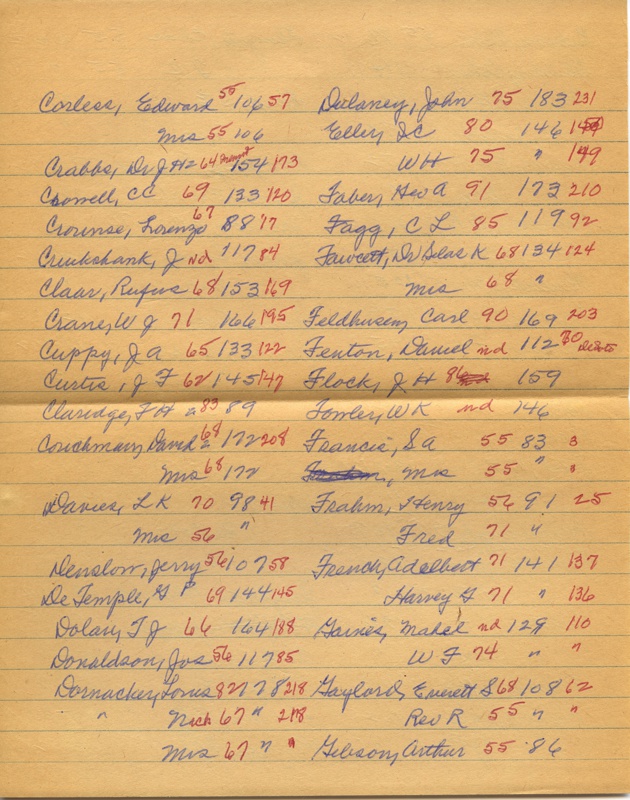 Corless, Edward 55 106 57
Mrs 55 106
Crabbs, Dr J H 64 154 173
Crowell, CC 69 133 120
Crounse, Lorenzo 67 88 17
Cruikshank, J nd 117 84
Claar, Rufus 68 153 169
Crane, W J 71 166 195
Cuppy, J A 65 133 122
Curtis, J F 62 145 147
Claridge, F H 83 89
Couchman, David 68 172 208
Mrs 68 172
Davies, L K 70 98 41
Mrs 56 "
Denslow, Jerry 56 107 58
De Temple, G P 69 144 145
Dolan, T J 66 164 188
Donaldson, Jos 56 117 85
Dornacker, Louis 82 178 218
" Nick 67 " 218
Mrs 67 " "
Dulaney, John 75 183 231
Eller, I C 80 146
W H 75 " 149
Faber, Geo A 91 173 210
Fagg, C L 85 119 92
Fawcett, Dr Silas K 68 134 124
Mrs 68 "
Feldhusen, Carl 90 169 203
Fenton, Daniel nd 112 70 DeSoto
Flock, J H 86 159
Fowler, W K nd 146
Francis, S A 55 83 3
, Mrs 55 " "
Frahm, Henry 56 91 25
Fred 71 "
French, Adelbert 71 141 137
Harvey G 71 " 136
Gaines, Mabel nd 129 110
W F 74 " "
Gaylord, Everett S 68 108 62
Rev R 55 " "
Gibson, Arthur 55 86